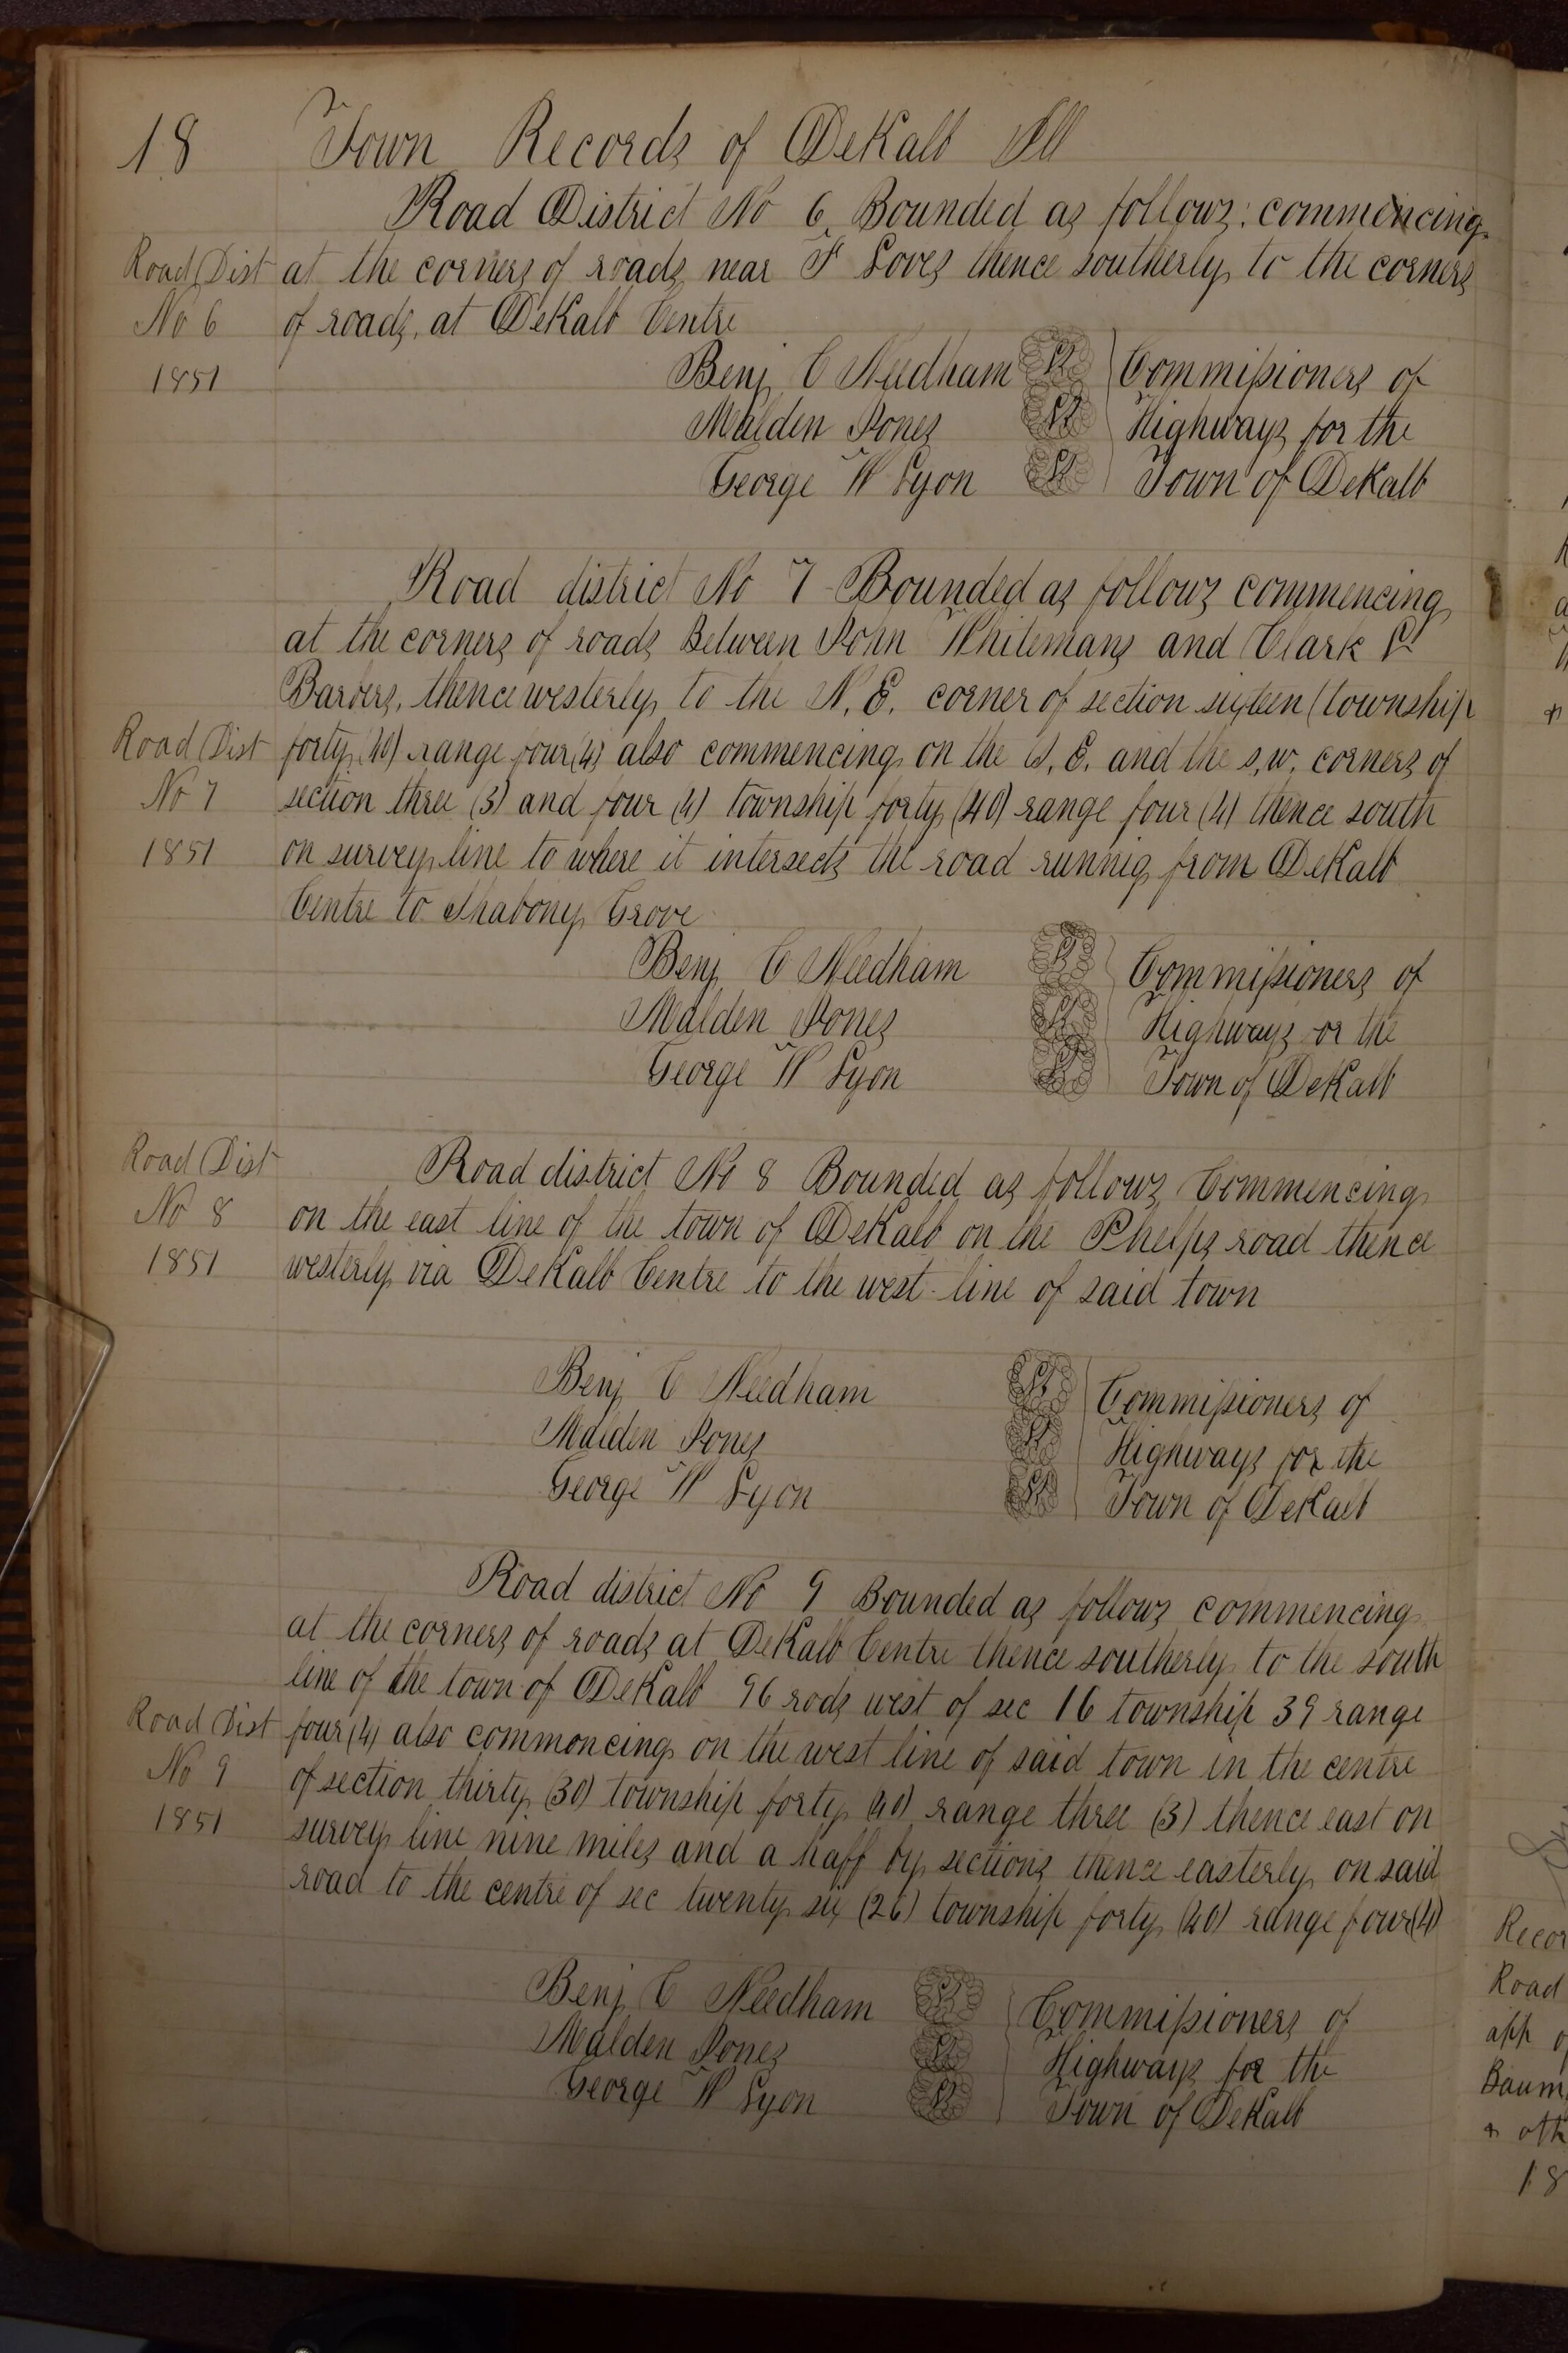 18 Town Records of DeKalb Ill
Road District No 6, Bounded as follows: commencing
Road Dist at the corners of roads near F Loves thence southerly to the corners
No 6 of roads, at DeKalb Centre
1851 Benj C Needham Commissioners of
Malden Jones Highways for the
George W Lyon Town of DeKalb
Road district No 7 Bounded as follows commencing
at the corners of roads Between John Whitemans and Clark
Barbers, thence westerly to the N. E. corner of section sixteen (township
Road Dist forty (40) range four (4) also commencing on the S. E. and the s, w, corners of
No 7 section three (3) and four (4) township forty (40) range four (4) thence south
1851 on survey line to where it intersects the road runnig from DeKalb
Centre to Shabony Grove
Benj C Needham Commissioners of
Malden Jones Highways or the
George W Lyon Town of DeKalb
Road Dist Road district No 8 Bounded as follows Commencing
No 8 on the east line of the town of DeKalb on the Phelps road thence
1851 westerly via DeKalb Centre to the west line of said town
Benj C Needham Commissioners of
Malden Jones Highways for the
George W Lyon Town of DeKalb
Road district No 9 Bounded as follows commencing
at the corners of roads at DeKalb Centre thence southerly to the south
line of the town of DeKalb 96 rods west of sec 16 township 39 range
Road Dist four (4) also commoncing on the west line of said town in the centre
No 9 of section thirty (30) township forty (40) range three (3) thence east on
1851 survey line nine miles and a haff by sections thence easterly on said
road to the centre of sec twenty six (26) township forty (40) range four (4)
Benj C Needham Commissioners of
Malden Jones Highways for the
George W Lyon Town of DeKalb
Recor
Road
app of
Baum
& oth
18